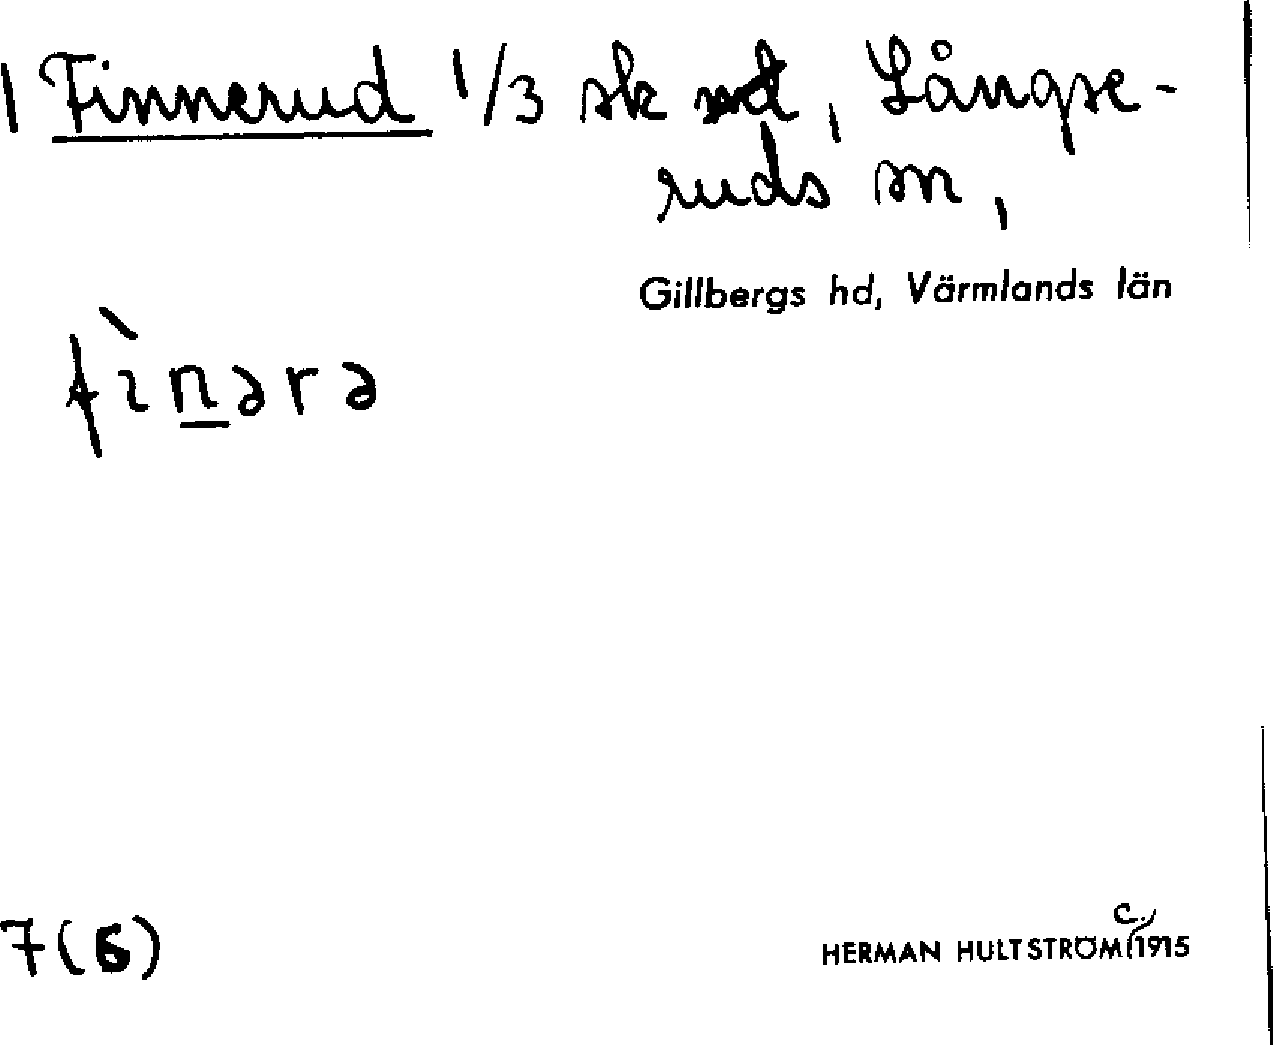 1 Finnerud 1/3 sk , Långse-
ruds sn,
Gillbergs hd, Värmlands län
fìnərə
7(6)
HERMAN HULTSTRÖM C. 1915